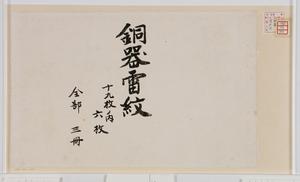 銅器雷紋
十九枚ノ内
六枚
全部 三冊